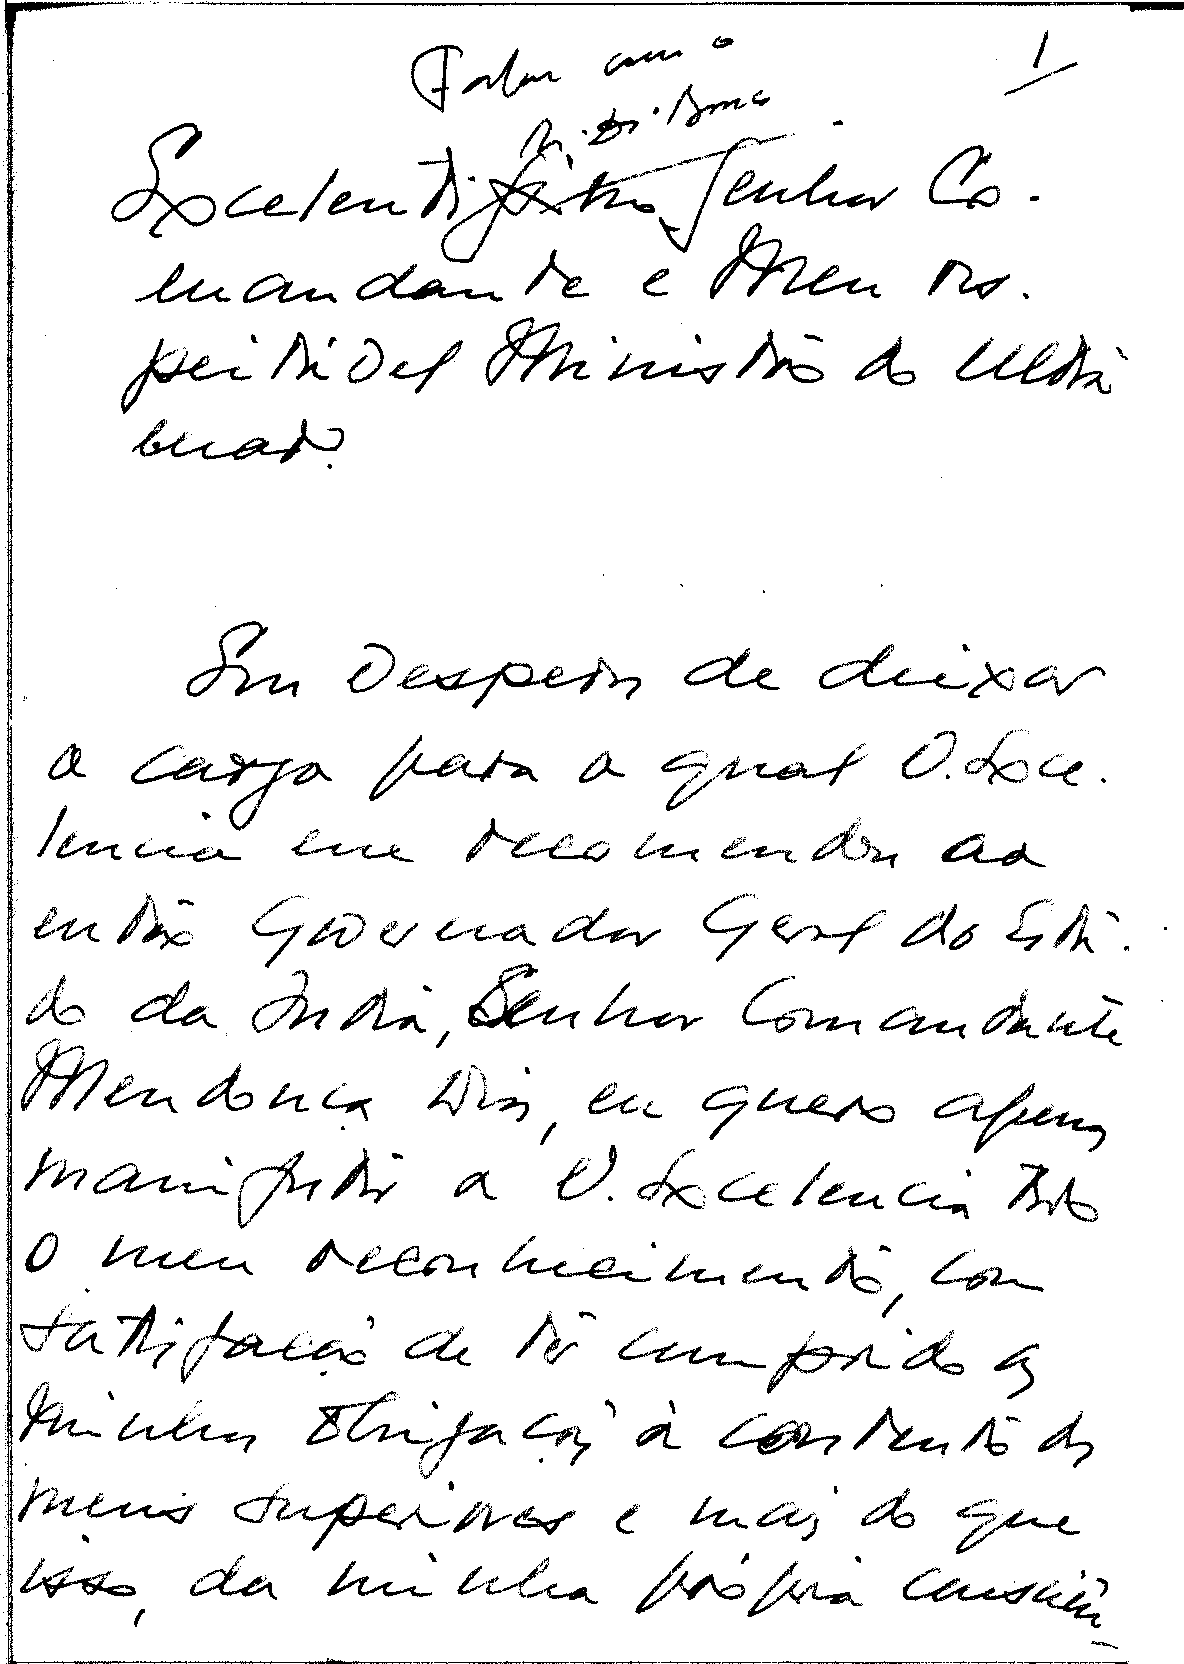 Falar com o
1
Excelentissimo Senhor Co-
mandante e Meu res-
peitável Ministro do Ultra
mar.
Em vesperas de deixar
o cargo para o qual V. Exce-
lencia me recomendou ao
então Governador Geral do Esta-
do da India, Senhor Comandante
Mendonça Dias, eu quero apenas
manifestar a V. Excelencia todo
o meu reconhecimento, com
satisfação de ter cumprido as
minhas obrigações à contento dos
meus superiores e mais do que
isso, da minha própria consciên-